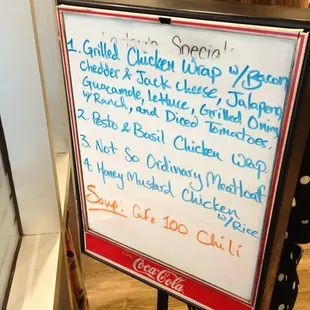 Special
1. Grilled Chicken Wrap w/Bacon
Chedder & Jack cheese, Jalapeno
Guacamole, Lettuce, Grilled Onions
w/Ranch, and Diced Tomatoes.
2. Pesto & Basil Chicken Wrap
3. Not So Ordinary Meatloaf
4. Honey Mustard Chicken
w/Rice
Soup: Cafe 100 Chili
Coca-Cola